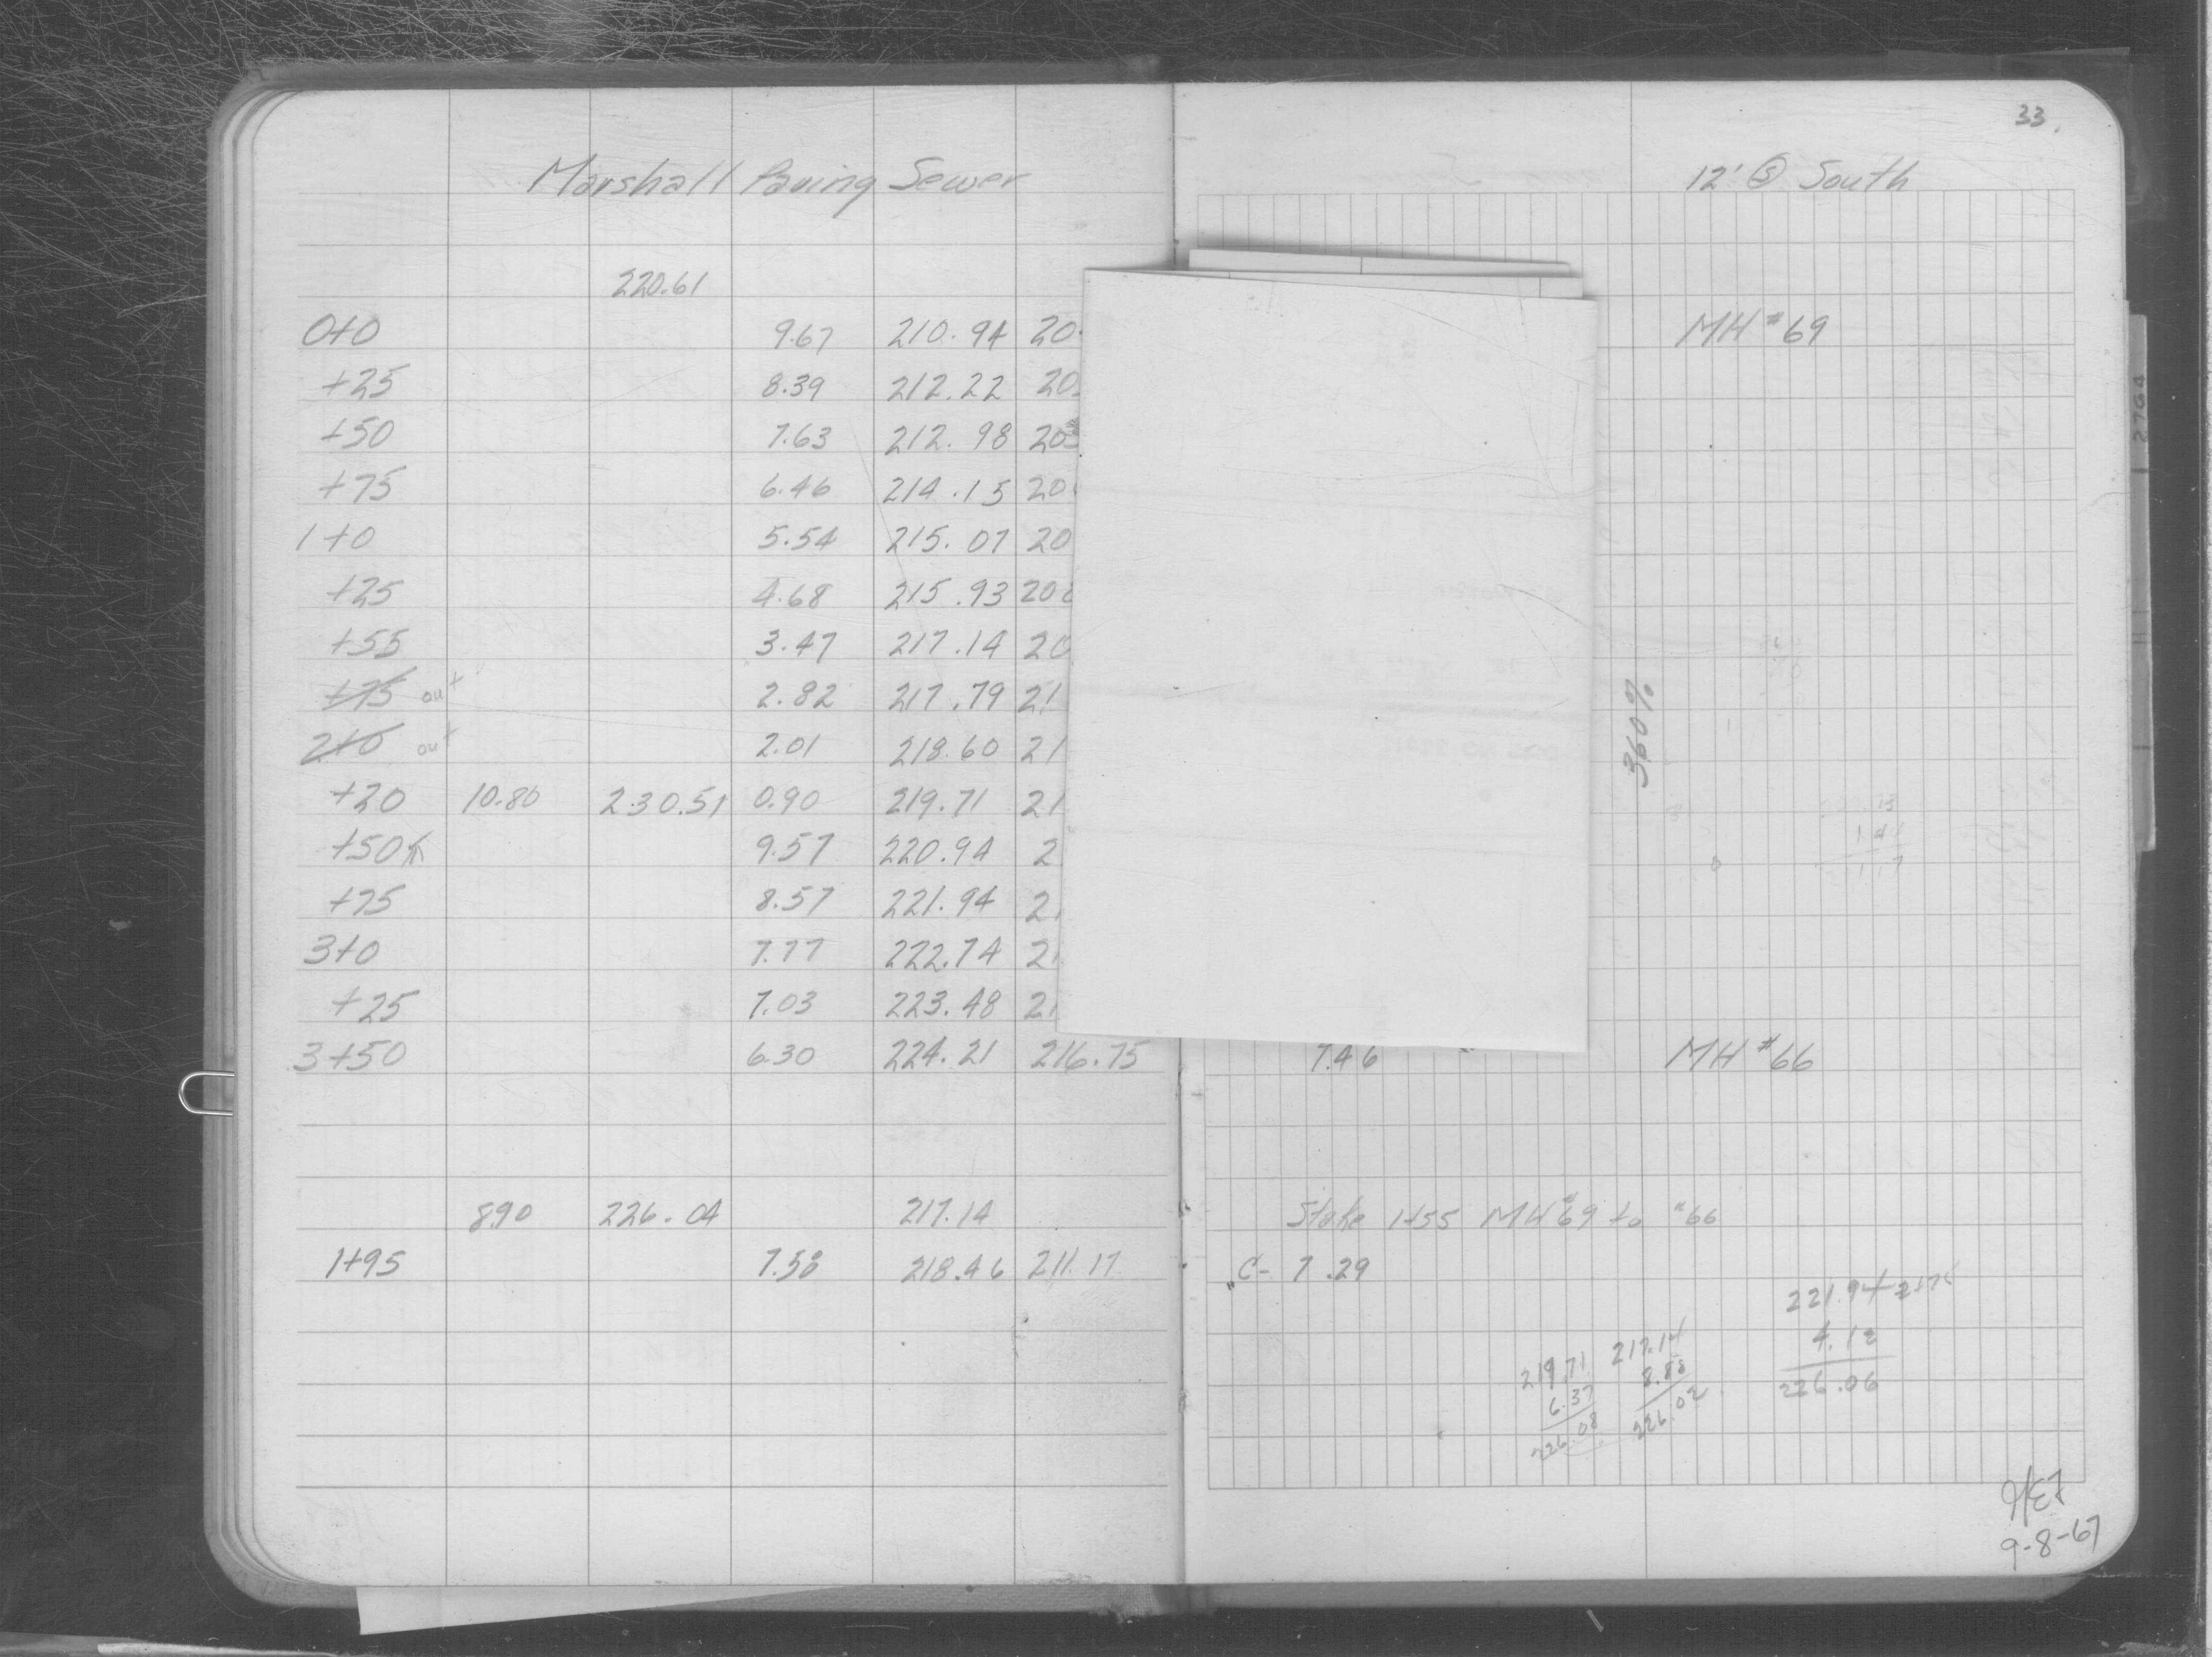 33.
Marshall Paving Sewer
12' Ⓢ South
220.61
0+0 9.67 210.94 20 MH #69
+25 8.39 212.22 20
+50 7.63 212.98 20
+75 6.46 214.15 20
1+0 5.54 215.07 20
+25 4.68 215.93 20
+55 3.47 217.14 20
+75 out 2.82 217.79 21
2+0 out 2.01 218.60 21
.360%
+20 10.80 230.51 0.90 219.71 21
+50 9.57 220.94 2
+75 8.57 221.94 2
3+0 7.77 222.74 21
+25 7.03 223.48 21
3+50 6.30 224.21 216.75 7.46 MH #66
8.90 226.04 217.14 Stake 1+55 MH #69 to #66
1+95 7.58 218.46 211.17 "C- 7.29
221.94
4.12
226.06
217.14
8.88
226.02
219.71
6.37
226.08
9-8-67
2764